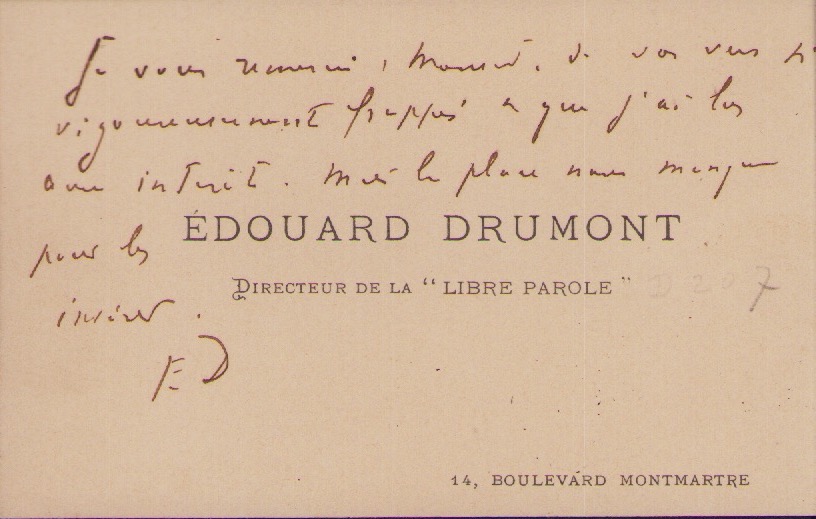 Je vous remercie, Monsieur, de vos vers si
vigoureusement frappés et que j'ai lus
avec intérêt. Mais la place nous manque
pour les
ÉDOUARD DRUMONT
DIRECTEUR DE LA "LIBRE PAROLE"
D 207
insérer.
ED
14, BOULEVARD MONTMARTRE